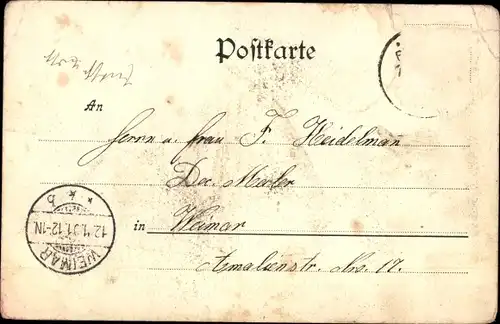 Postkarte
An
Herrn u. Frau F. Heidelman
Dec. Maler
in Weimar
Amalienstr. No. 17.
WEIMAR
12-1N
* * b